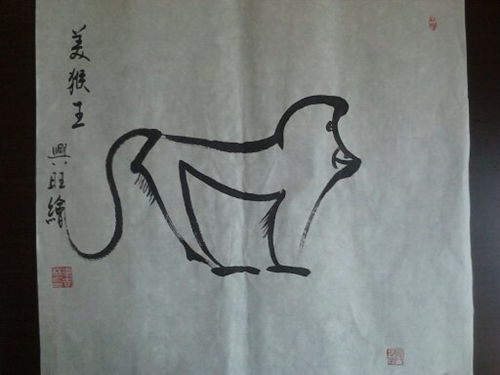 美猴王
興旺繪